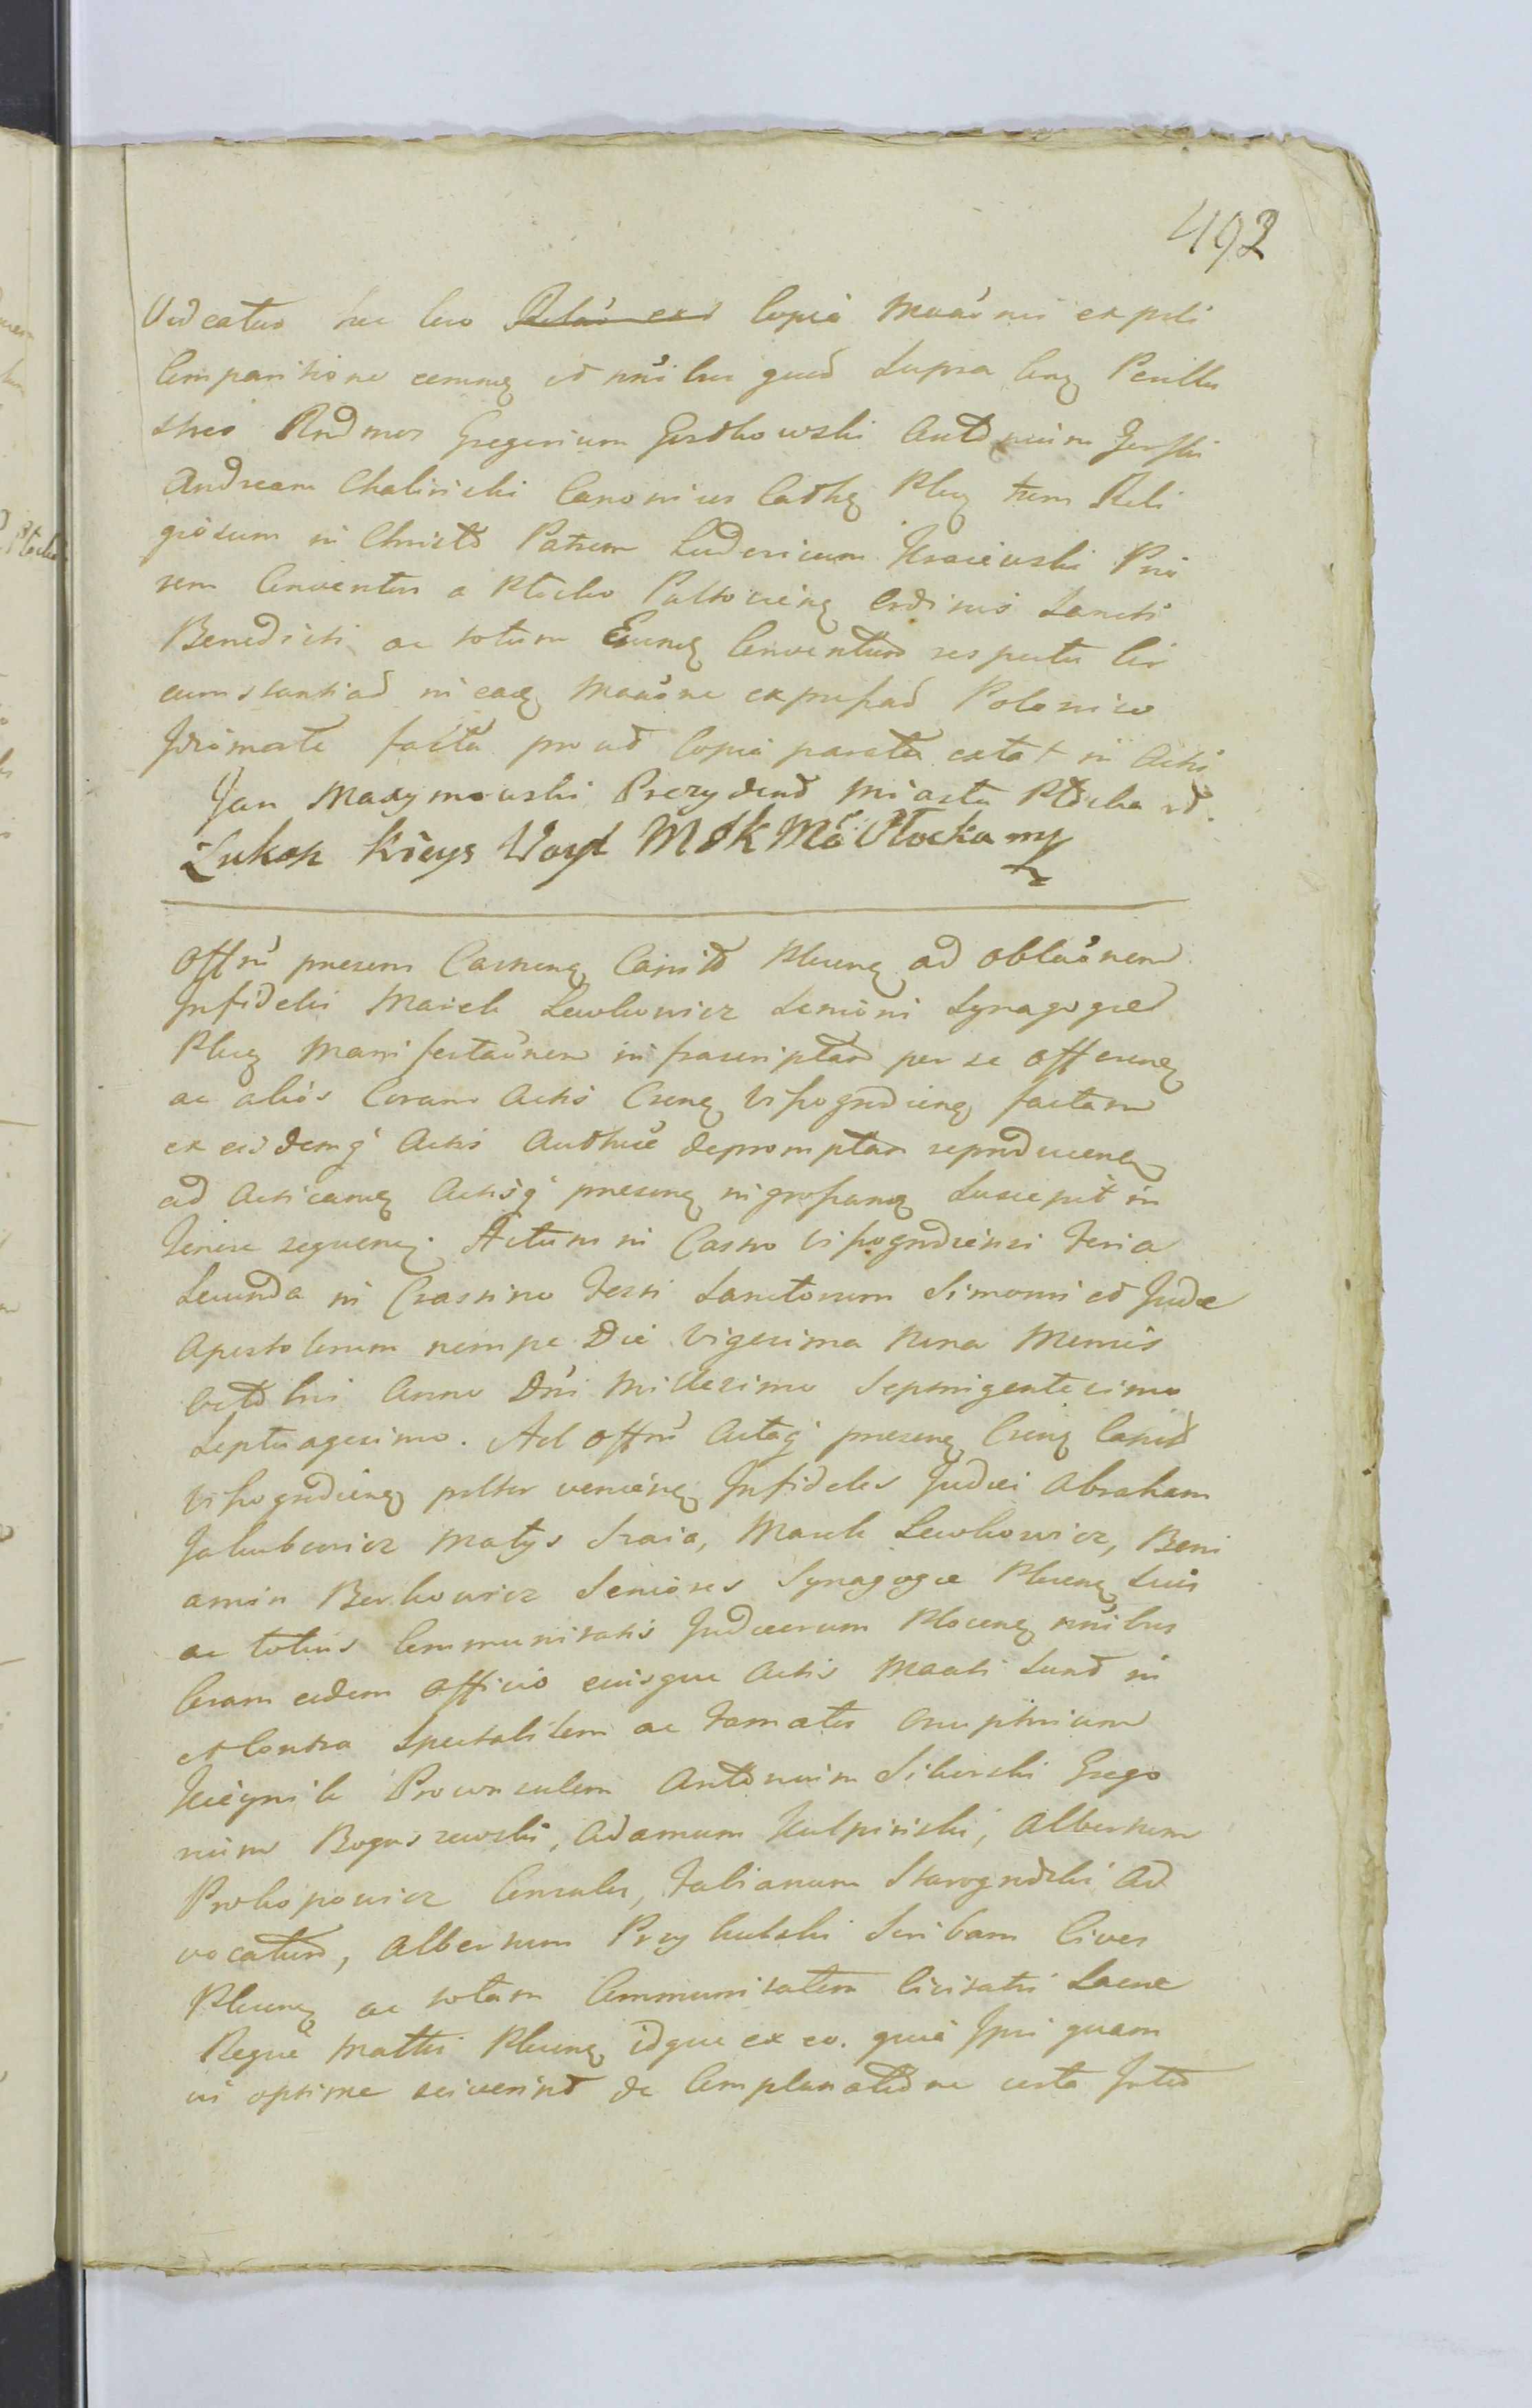 492
Videatur hic loco Relao exd Copia Maaónis ex psti
Comparitione eorumq et nnibus quod supra Cnq Perillu
stres Rndmos Gregorium Gostkowski Antonium Jerski
Andream Chalinicki Canonicos Cathq Plcq tum Reli
giosum in Christo Patrem Ludovicum Kraiewski Prio
rem Conventus a Plocko Pultovienq Ordinis Sancti
Benedicti ac totum Eiunq Conventum respectu Cir
cumstantiad in eaq Maaóne expressad Polonico
Idiomate factа prout Copia parata extat in Actis
Jan Maxymowski Prezydent Miasta Płocka
Lukasz Kieys Woyt M JK Mći Płocka mp
Offm presens Castrenq Capitt Plcenq ad oblaónem
Infidelis Marek Lewkowicz Senioris Synagogæ
Plcq Manifestaónem infrascriptam per se offerenq
ac aliàs Coram Actis Csenq Wyszogrdienq factam
ex eisdemq Actis Authce depromptam reproducenq
ad acticanq Actisq presenq ingrossanq suscepit in
tenore sequenq. Actum in Castro Wyszogrodiensi Feria
Secunda in Crastino Festi Sanctorum Simonis et Judæ
Apostolorum nempe Die Vigesima Nona Mensis
Octobris Anno Dni Millesimo Septingentesimo
Septuagesimo. Ad Offm Actaq presenq Csenq Capitt
Wyszogrdienq psltor venienq Infideles Judæi Abraham
Jakubowicz Matys Szaia, Marek Lewkowicz, Beni
amin Berkowicz Seniores Synagogæ Plcenq suis
ac totius Communitatis Judæorum Plocenq nnibus
Coram eodem Officio eiusque Actis Maati sunt in
et Contra Spectabilem ac Famatos Onuphrium
Kieynik Proconsulem Antonium Sikorski Grego
rium Boguszewski, Adamum Kulpinski, Albertum
Prokopowicz Consules, Fabianum Starogrdzki Ad
vocatum, Albertum Przykulski Scribam Cives
Plcenq ac totam Communitatem Civitatis Sacræ
Regiæ Mattis Plcenq idque ex eo. quia Ipsi quam
vis optime sciverint de Complanatione certa Inter